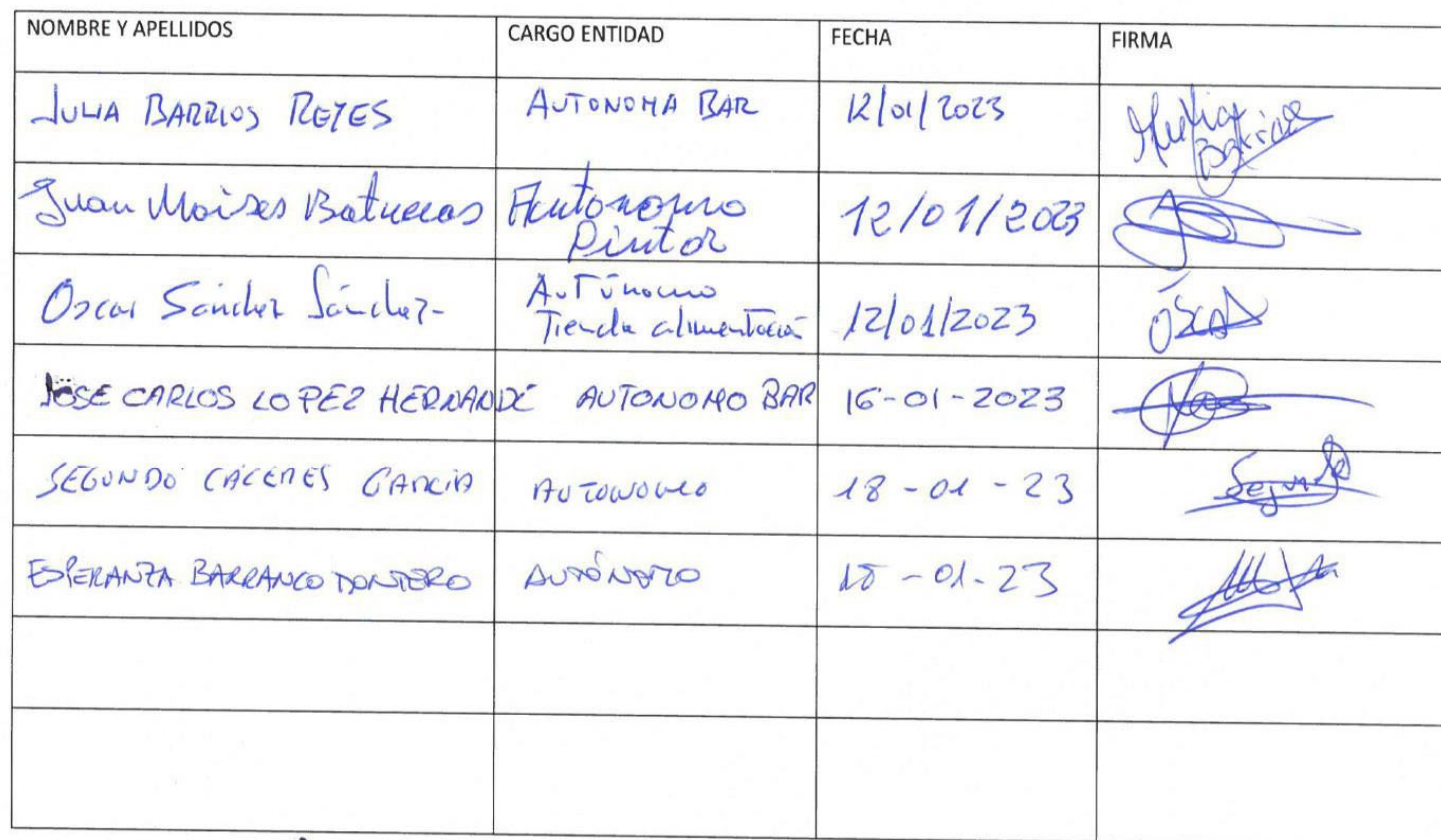 NOMBRE Y APELLIDOS CARGO ENTIDAD FECHA FIRMA
JULIA BARRIOS REYES AUTONOMA BAR 12/01/2023 Julia Barrios
Juan Moises Batuecas Autonomo Pintor 12/01/2023
Oscar Sánchez Sánchez- Autónomo Tienda alimentación 12/01/2023 ÓSCAR
JOSE CARLOS LOPEZ HERNANDE AUTONOMO BAR 16-01-2023
SEGUNDO CÁCERES GARCÍA AUTONOMO 18-01-23 Segundo
ESPERANZA BARRANCO AUTÓNOMO 18-01-23